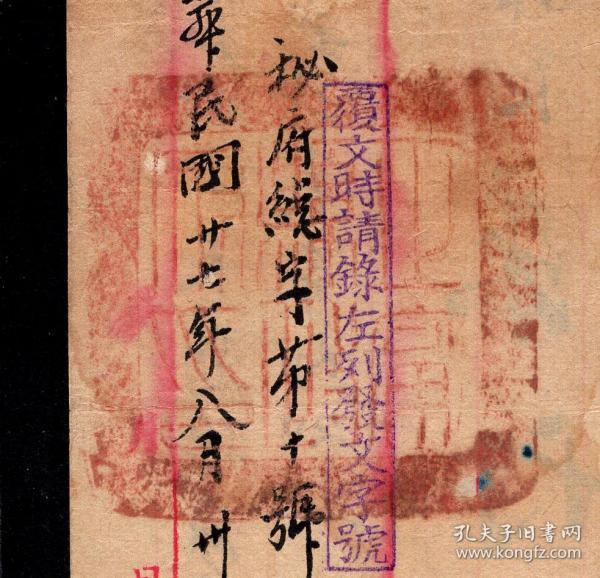 覆文時請錄左列發文字號
秘府總字第十號
華民國廿七年八月卅
孔夫子旧书网
www.kongfz.com